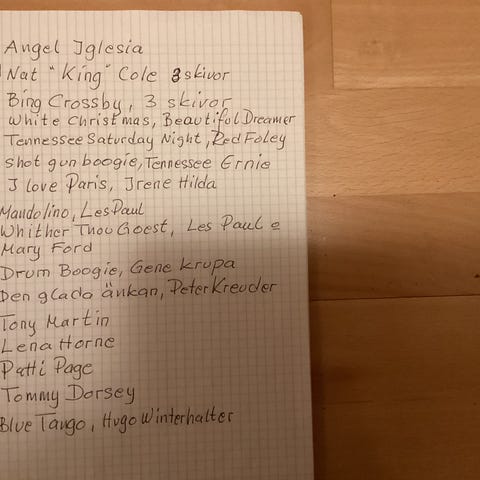 Angel Iglesia
Nat "King" Cole 3 skivor
Bing Crossby, 3 skivor
White Christmas, Beautiful Dreamer
Tennessee Saturday Night, Red Foley
Shot gun boogie, Tennessee Ernie
I love Paris, Irene Hilda
Mandolino, Les Paul
Whither Thou Goest, Les Paul e
Mary Ford
Drum Boogie, Gene Krupa
Den glada änkan, Peter Kreuder
Tony Martin
Lena Horne
Patti Page
Tommy Dorsey
Blue Tango, Hugo Winterhalter